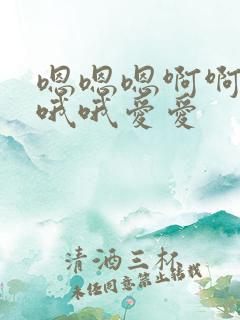 嗯嗯嗯啊啊
哦哦爱愛
清酒三杯
未经同意禁止转载